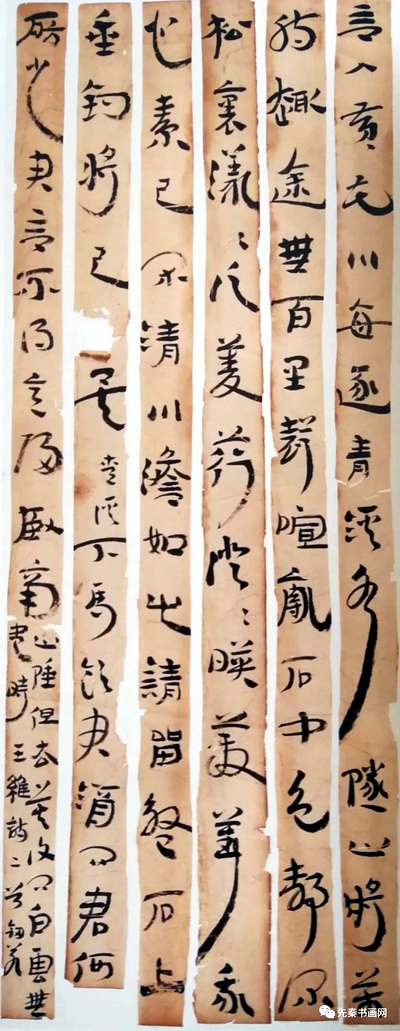 言入黄花川每逐青溪水隨山將萬
轉趣途無百里聲喧亂石中色靜深
松裏漾〻汎菱荇澄〻映葭葦我
心素已閑清川澹如此請留盤石上
垂釣將已矣 青溪 下馬飲君酒問君何
所之君言不得意歸臥南山陲但去莫復問白雲無
盡時 王維詩二首
先秦书画网